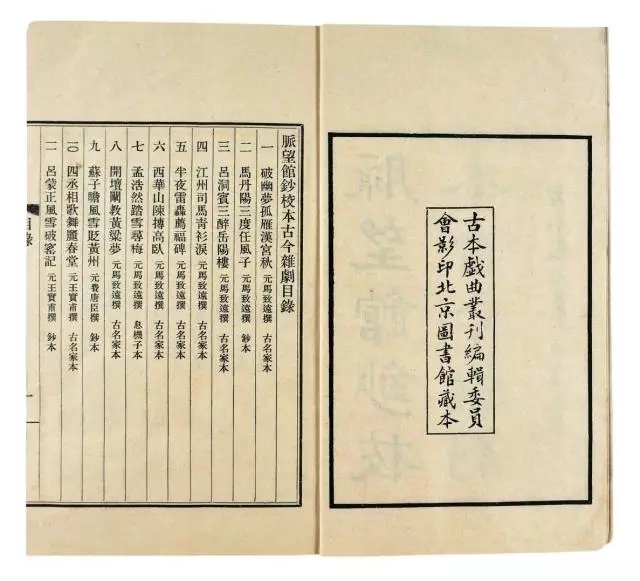 古本戲曲叢刊編輯委員
會影印北京圖書館藏本
脈望館鈔校本古今雜劇目錄
一 破幽夢孤雁漢宮秋 元馬致遠撰 古名家本
二 馬丹陽三度任風子 元馬致遠撰 鈔本
三 呂洞賓三醉岳陽樓 元馬致遠撰 古名家本
四 江州司馬青衫淚 元馬致遠撰 古名家本
五 半夜雷轟薦福碑 元馬致遠撰 古名家本
六 西華山陳摶高臥 元馬致遠撰 古名家本
七 孟浩然踏雪尋梅 元馬致遠撰 息機子本
八 開壇闡教黃粱夢 元馬致遠撰 古名家本
九 蘇子瞻風雪貶黃州 元費唐臣撰 鈔本
一〇 四丞相歌舞麗春堂 元王實甫撰 古名家本
一一 呂蒙正風雪破窰記 元王實甫撰 鈔本
目錄
一